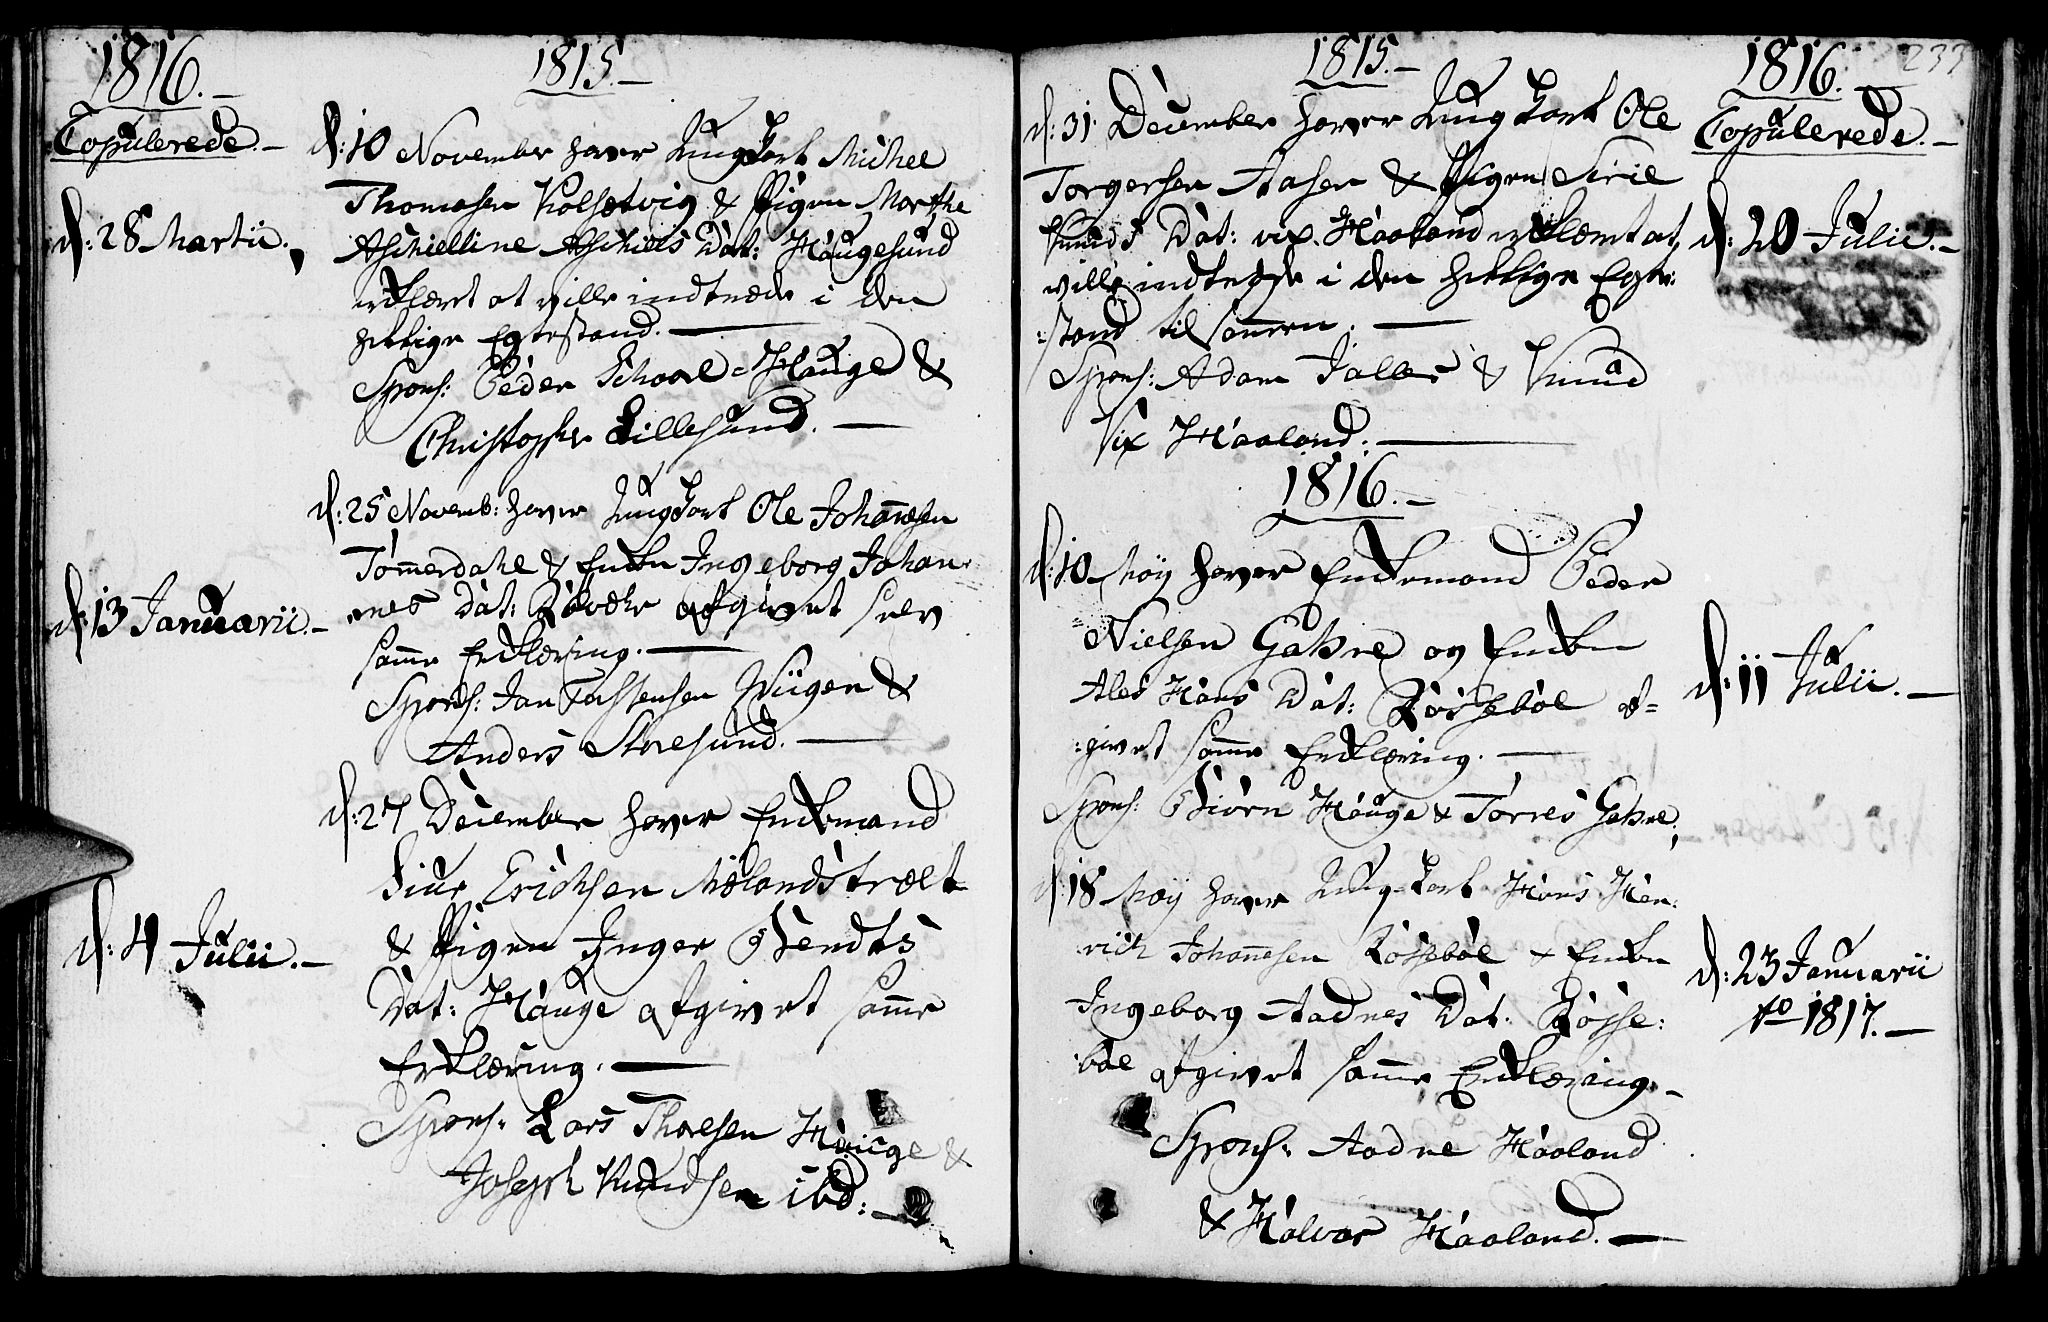 1816.
Copulerede.
d: 28 Martii.
d: 13 Januarii.
d: 4 Julii.
1815.
d: 10 November haver Ungkarl Michel
Thomasen Kolsetvig & Pigen Marthe
Aschielline Aschiels Dat: Haugesund
erklæret at ville indtræde i den
hellige Egtestand.
Spons: Peder Schaae Hauge &
Christopher Lillesund.
d: 25 Novemb: haver Ungkarl Ole Johannesen
Tømmerdahl & Enken Ingeborg Johan-
nes Dat: afgivet
samme Erklæring.
Spons: Jan &
Anders Storesund.
d: 27 December haver Enkemand
Siur Erichsen Mælandstræt
& Pigen Inger Bendts
Dat: Hauge afgivet samme
Erklæring.
Spons: Lars Thoresen Hauge &
Joseph Knudsen ibd:
1815.
d: 31 December haver Ungkarl Ole
Torgersen Aasen & Pigen Sirie
Knuds Dat: vix. Haaland erklæret at
ville indtræde i den hellige Egte:
:stand tilsammen.
Spons: Adam & Knud
Vix Haaland.
1816.
d: 10 May haver Enkemand Peder
Nielsen Gahre og Enken
Ales Hans Dat: Røssebøe af=
:givet samme Erklæring.
Spons: Biørn Hauge & Torres Gahre
d: 18 May haver Ungkarl Hans Hen:
rich Johannesen Røssebøe & Enken
Ingeborg Aadnes Dat: Røsse:
:bøe afgivet samme Erklæring.
Spons: Aadne Haaland
& Halvor Haaland.
1816.
233
Copulerede.
d: 20 Julii.
d: 11 Julii.
d: 23 Januarii
1817.